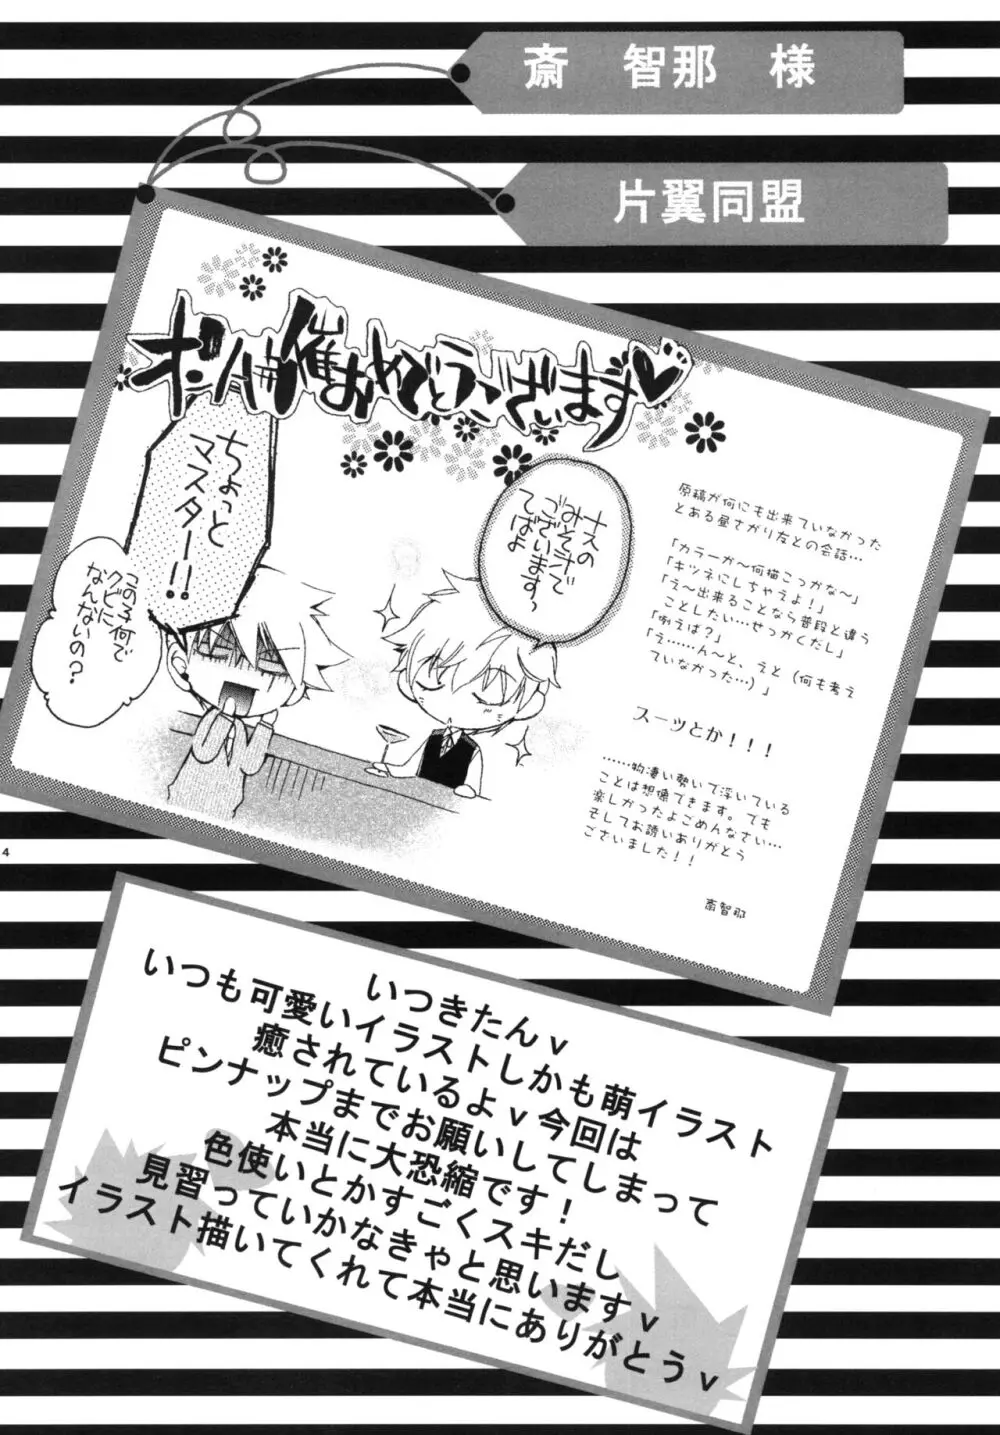 斎 智那 様
片翼同盟
オンリー開催おめでとうございます♥
ちょっと
マスター!!
この子何で
クビに
なんないの?
ナスの
みそ汁で
ございます〜
てばよ
原稿が何にも出来ていなかった
とある昼さがり友との会話…
「カラーか〜何描こっかな〜」
「キツネにしちゃえよ!」
「え〜出来ることなら普段と違う
ことしたい…せっかくだし」
「例えば?」
「え……ん〜と、えと(何も考え
ていなかった…)」
スーツとか!!!
……物凄い勢いで浮いている
ことは想像できます。でも
楽しかったよごめんなさい…
そしてお誘いありがとう
ございました!!
斎智那
4
いつきたんv
いつも可愛いイラストしかも萌イラスト
癒されているよv今回は
ピンナップまでお願いしてしまって
本当に大恐縮です!
色使いとかすごくスキだし
見習っていかなきゃと思いますv
イラスト描いてくれて本当にありがとうv